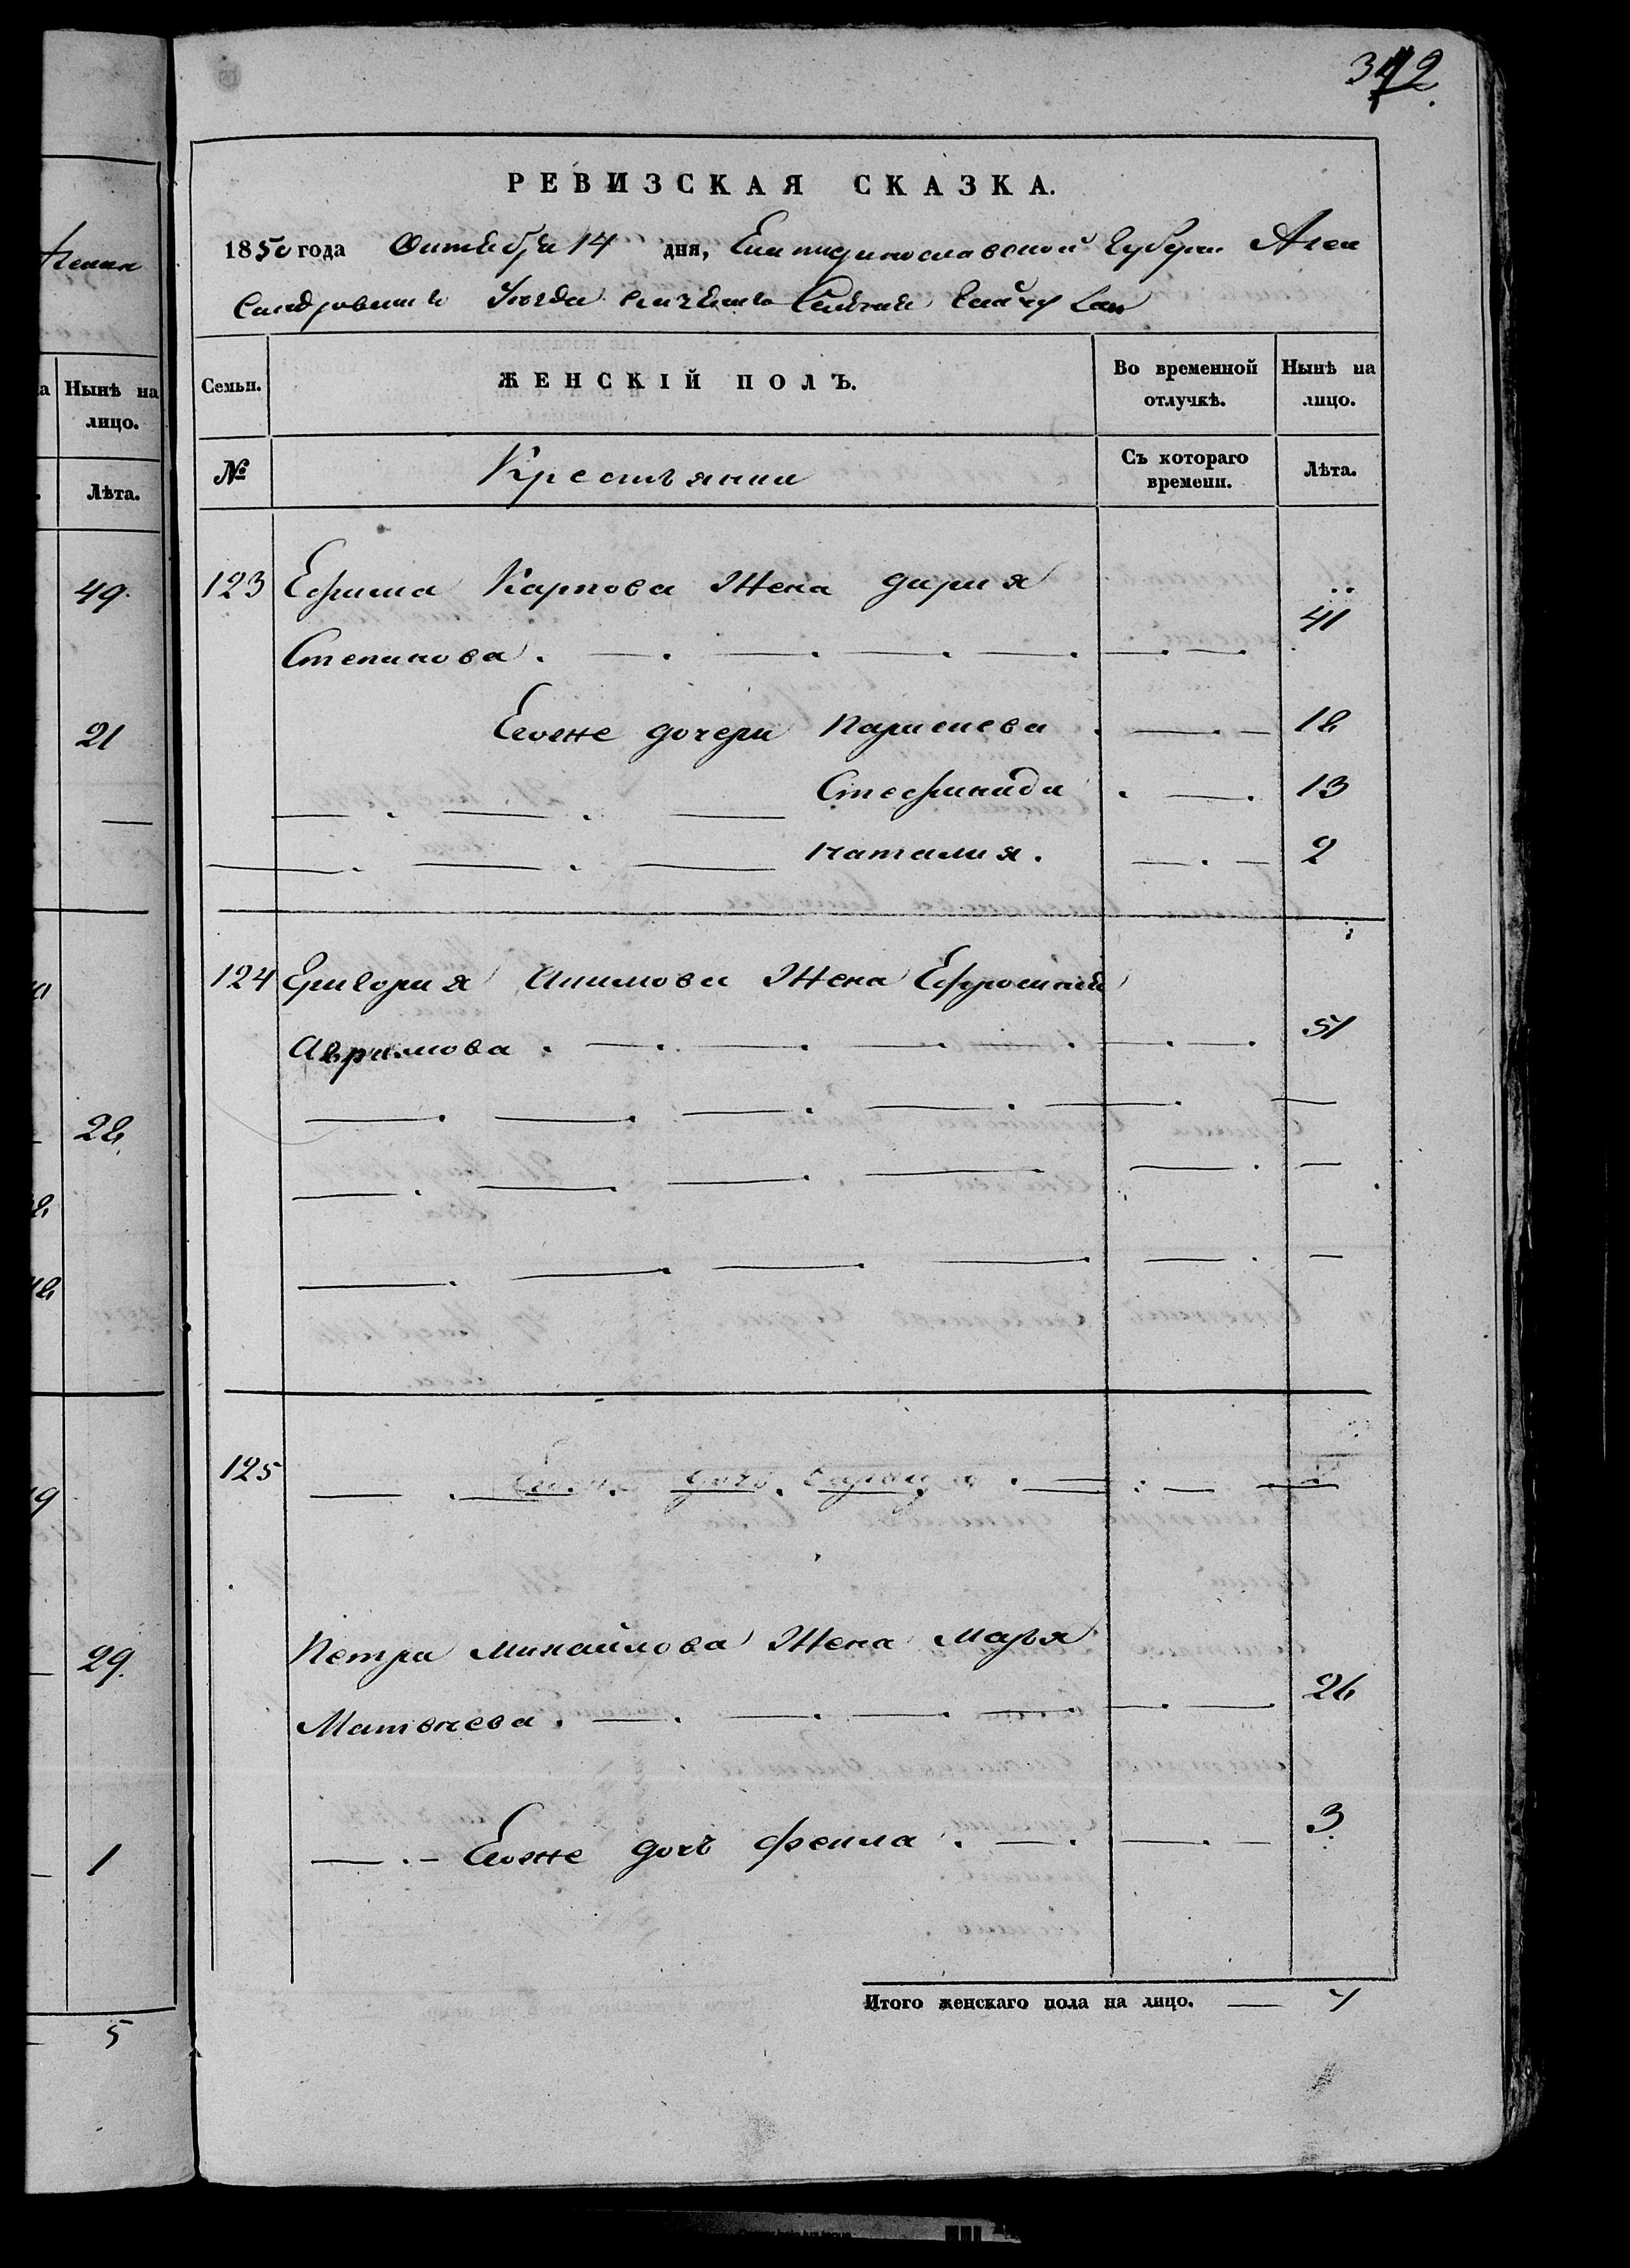 342.
РЕВИЗСКАЯ СКАЗКА.
1850 года Октября 14 дня, Екатеринославской Губернии Алек
сандровскаго Уѣзда
Семьи.
ЖЕНСКІЙ ПОЛЪ.
Во временной отлучкѣ.
Нынѣ на лицо.
№
Крестьянки
Съ котораго времени.
Лѣта.
123 Ефима Карпова Жена дария
Степанова. 41
Егоже дочери 18
Стефанида 13
наталия. 2
124 Григория Акимова Жена Ефросиния
Аврамова. 51
125
Петра михайлова Жена марья
Матвеева. 26
Егоже дочь фекла. 3
Итого женскаго пола на лицо. — 7
Нынѣ на лицо.
Лѣта.
49.
21
28
29.
1
5